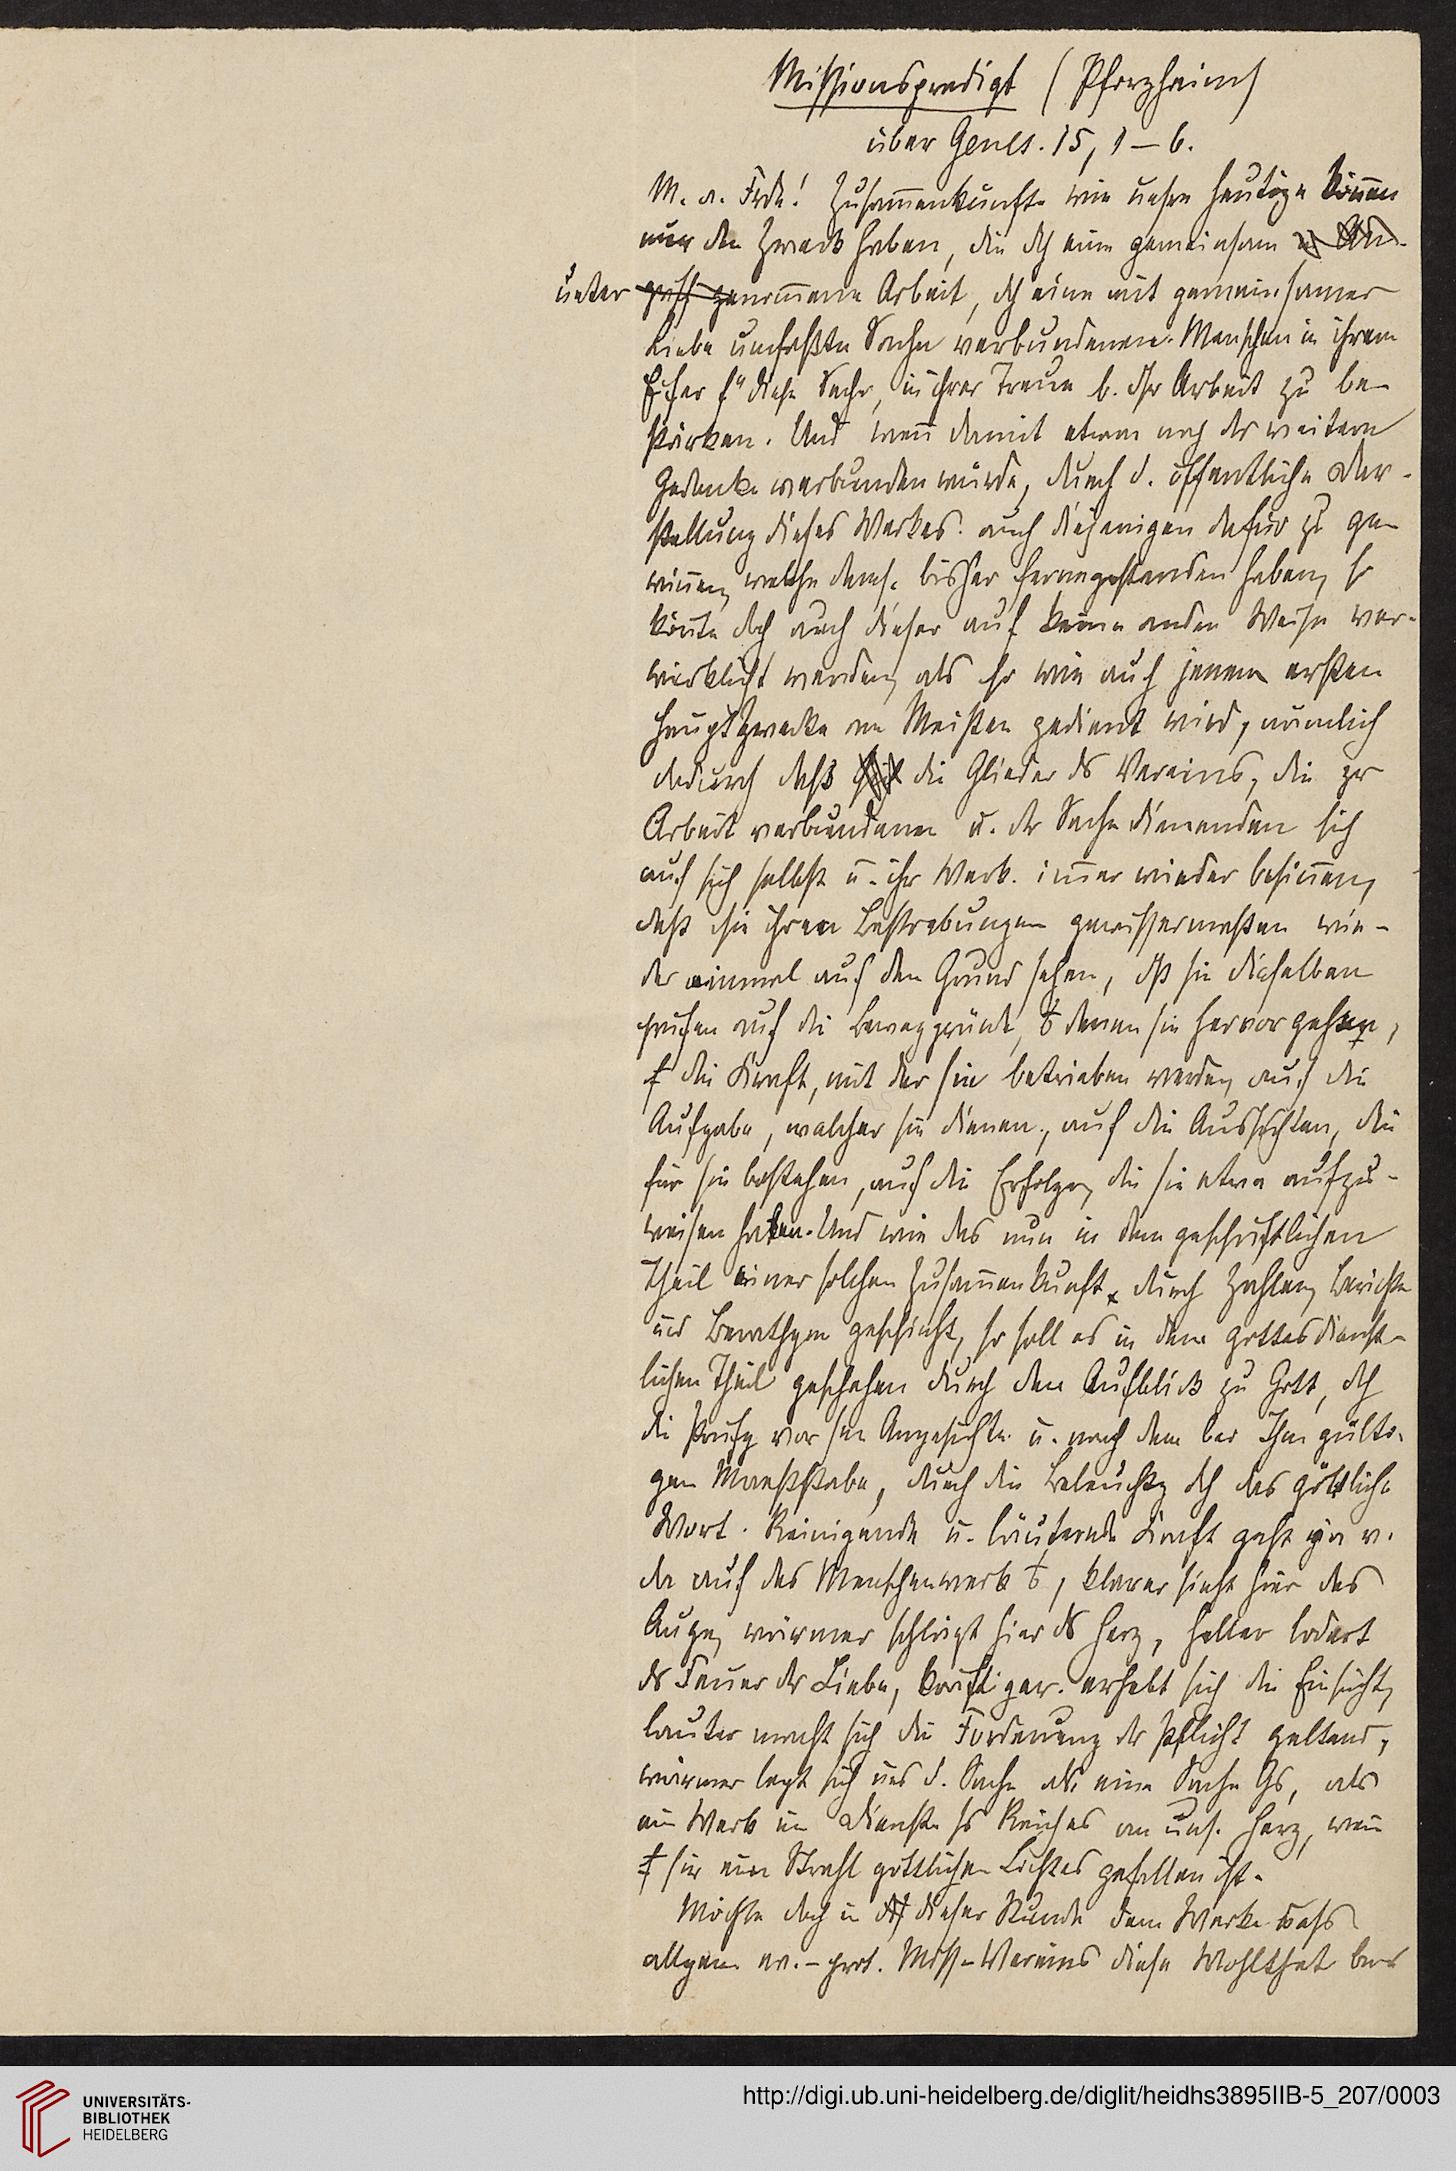 Missionspredigt (Pforzheim)
über Genes. 15, 1–6.
M. a. Frde! Zusam̄enkünfte wie unsre heutige kön̄en
nur den Zweck haben, die dch eine gemeinsam
unter genom̄ene Arbeit, dch eine mit gemeinsamer
Liebe umfaßte Sache verbundenen Menschen in ihrem
Eifer f" diese Sache, in ihrer Treue b. dsr Arbeit zu be-
stärken. Und wen̄ damit etwa noch der weitere
Gedanke verbunden würde, durch d. öffentliche Dar-
stellung dieses Werkes auch diejenigen dafür zu ge-
win̄en, welche dems. bisher ferngestanden haben, so
kön̄te doch auch dieser auf keine andere Weise ver-
wirklicht werden, als so wie auch jenem ersten
Hauptzwecke am Meisten gedient wird, nämlich
dadurch daß die Glieder ds Vereins, die zr
Arbeit verbundenen u. der Sache dienenden sich
auf sich selbst u. ihr Werk im̄er wieder besin̄en,
daß sie ihren Bestrebungen gewissermaßen wie-
der einmal auf den Grund sehen, dß sie dieselben
prüfen auf die Beweggründe, denen sie hervorgehen,
die Kraft, mit der sie betrieben werden, auf die
Aufgabe, welcher sie dienen, auf die Aussichten, die
für sie bestehen, auf die Erfolge, die sie etwa aufzu-
weisen haben. Und wie das nun in dem geschäftlichen
Theil einer solchen Zusam̄enkunft durch Zahlen, Berichte
und Berathgen geschieht, so soll es in dem gottesdienst-
lichen Theil geschehen durch den Aufblick zu Gott, dch
die Prüfg vor sm Angesichte u. nach dem bei Ihm gülti-
gen Maaßstabe, durch die Beleuchtg dch das göttliche
Wort. Reinigende u. läuternde Kraft geht ja v.
da auf das Menschenwerk, klarer sieht hier das
Auge, wärmer schlägt hier ds Herz, heller lodert
ds Feuer der Liebe, kräftiger erhebt sich die Einsicht,
lauter macht sich die Forderung der Pflicht geltend,
wärmer legt sich uns d. Sache als eine Sache Gs, als
ein Werk im Dienste ss Reiches an uns. Herz, wen̄
sie ein Strahl göttlichen Lichtes gefallen ist.
Möchte doch in dieser Stunde dem Werke
allgem. ev.-prot. Miss-Vereins diese Wohlthat
UNIVERSITÄTS-
BIBLIOTHEK
HEIDELBERG
http://digi.ub.uni-heidelberg.de/diglit/heidhs3895IIB-5_207/0003